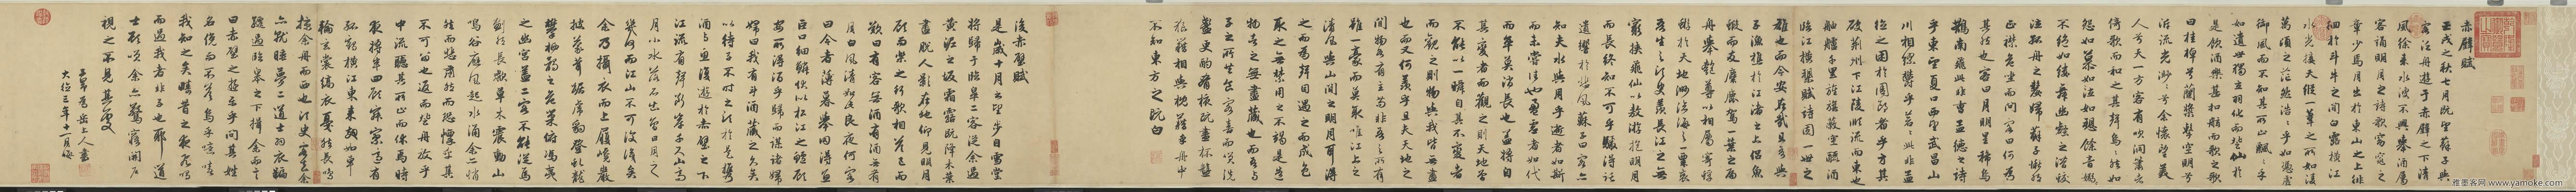 赤壁賦
壬戌之秋七月既望蘇子與
客泛舟遊于赤壁之下清
風徐來水波不興舉酒屬
客誦明月之詩歌窈窕之
章少焉月出於東山之上徘
徊於斗牛之間白露橫江
水光接天縱一葦之所如凌
萬頃之茫然浩浩乎如憑虛
御風而不知其所止飄飄乎
如遺世獨立羽化而登仙於
是飲酒樂甚扣舷而歌之歌
曰桂棹兮蘭槳擊空明兮
泝流光渺渺兮余懷望美
人兮天一方客有吹洞簫者
倚歌而和之其聲嗚嗚然如
怨如慕如泣如愬餘音嫋嫋
不絕如縷舞幽壑之潛蛟
泣孤舟之嫠婦蘇子愀然
正襟危坐而問客曰何為
其然也客曰月明星稀烏
鵲南飛此非曹孟德之詩
乎東望夏口西望武昌山
川相繆鬱乎蒼蒼此非孟
德之困於周郎者乎方其
破荊州下江陵順流而東也
舳艫千里旌旗蔽空釃酒
臨江橫槊賦詩固一世之
雄也而今安在哉況吾與
子漁樵於江渚之上侶魚
蝦而友麋鹿駕一葉之扁
舟舉匏尊以相屬寄蜉
蝣於天地渺滄海之一粟哀
吾生之須臾羨長江之無
窮挾飛仙以遨遊抱明月
而長終知不可乎驟得託
遺響於悲風蘇子曰客亦
知夫水與月乎逝者如斯
而未嘗往也盈虛者如代
而卒莫消長也蓋將自
其變者而觀之則天地曾
不能以一瞬自其不變者
而觀之則物與我皆無盡
也而又何羨乎且夫天地之
間物各有主苟非吾之所有
雖一毫而莫取唯江上之
清風與山間之明月耳得
之而為聲目遇之而成色
取之無禁用之不竭是造
物者之無盡藏也而吾與
子之所共食客喜而笑洗
盞更酌肴核既盡杯盤
狼籍相與枕藉乎舟中
不知東方之既白
後赤壁賦
是歲十月之望步自雪堂
將歸于臨皋二客從余過
黃泥之坂霜露既降木葉
盡脫人影在地仰見明月
顧而樂之行歌相答已而
歎曰有客無酒有酒無肴
月白風清如此良夜何客
曰今者薄暮舉網得魚
巨口細鱗狀似松江之鱸顧
安所得酒乎歸而謀諸婦
婦曰我有斗酒藏之久矣
以待子不時之須於是攜
酒與魚復遊於赤壁之下
江流有聲斷岸千尺山高
月小水落石出曾日月之
幾何而江山不可復識矣
余乃攝衣而上履巉巖
披蒙茸踞虎豹登虬龍
攀栖鶻之危巢俯馮夷
之幽宮蓋二客不能從焉
劃然長嘯草木震動山
鳴谷應風起水涌余亦悄
然而悲肅然而恐凜乎其
不可留也返而登舟放乎
中流聽其所止而休焉時
夜將半四顧寂寥適有
孤鶴橫江東來翅如車
輪玄裳縞衣戛然長鳴
掠余舟而西也須臾客去余
亦就睡夢二道士羽衣翩
躚過臨皋之下揖余而言
曰赤壁之遊樂乎問其姓
名俛而不答嗚呼噫嘻
我知之矣疇昔之夜飛鳴
而過我者非子也耶道
士顧笑余亦驚寤開戶
視之不見其處
子昂為岳上人書
大德三年十一月
雅墨客网 www.yamoke.com